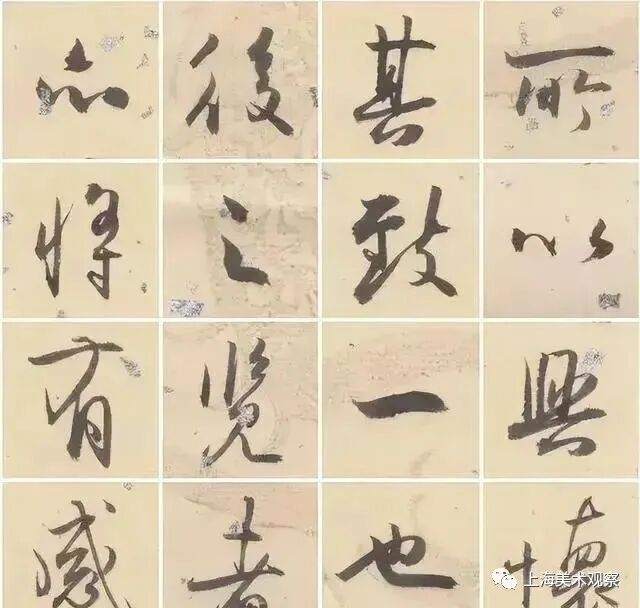 所以興懷
其致一也
後之覽者
亦將有感
上海美术观察